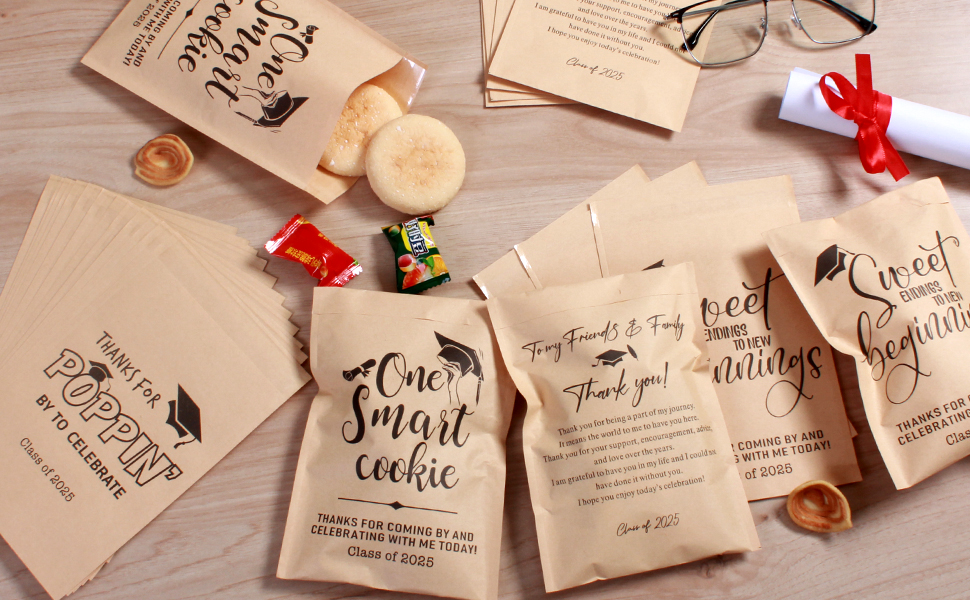 COMING BY AND
WITH ME TODAY!
2025
One
Smart
cookie
your support, encouragement,
and love over the years.
I am grateful to have you in my life and I could
have done it without you.
I hope you enjoy today's celebration!
Class of 2025
THANKS FOR
POPPIN'
BY TO CELEBRATE
Class of 2025
One
Smart
cookie
THANKS FOR COMING BY AND
CELEBRATING WITH ME TODAY!
Class of 2025
To my Friends & Family
Thank you!
Thank you for being a part of my journey.
It means the world to me to have you here.
Thank you for your support, encouragement, advice,
and love over the years.
I am grateful to have you in my life and I could
have done it without you.
I hope you enjoy today's celebration!
Class of 2025
weet
ENDINGS
TO NEW
nnings
COMING BY AND
G WITH ME TODAY!
of 2025
Sweet
ENDINGS
TO NEW
beginnin
THANKS FOR
CELEBRATING
Class